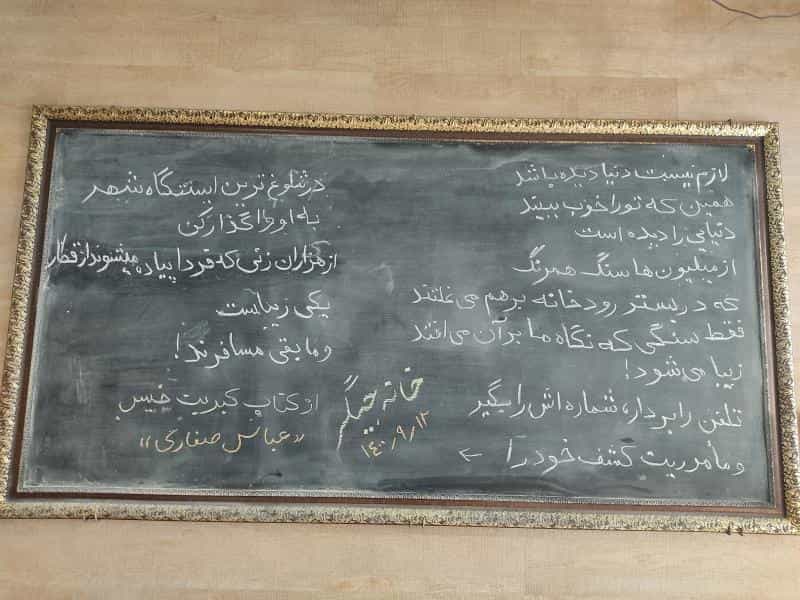 لازم نیست دنیا دیده باشد
همین که تو را خوب ببیند
دنیایی را دیده است
از میلیون ها سنگ همرنگ
که در بستر رودخانه بر هم می غلتند
فقط سنگی که نگاه ما بر آن می افتد
زیبا می شود!
تلفن را بردار، شماره اش را بگیر
و مأموریت کشف خود را ←
در شلوغ ترین ایستگاه شهر
به او واگذار کن
از هزاران زنی که فردا پیاده میشوند از قطار
یکی زیباست
و مابقی مسافرند!
از کتاب کبریت خیس
«عباس صفاری»
خانه چیگر
۱۴۰۰/۹/۱۲